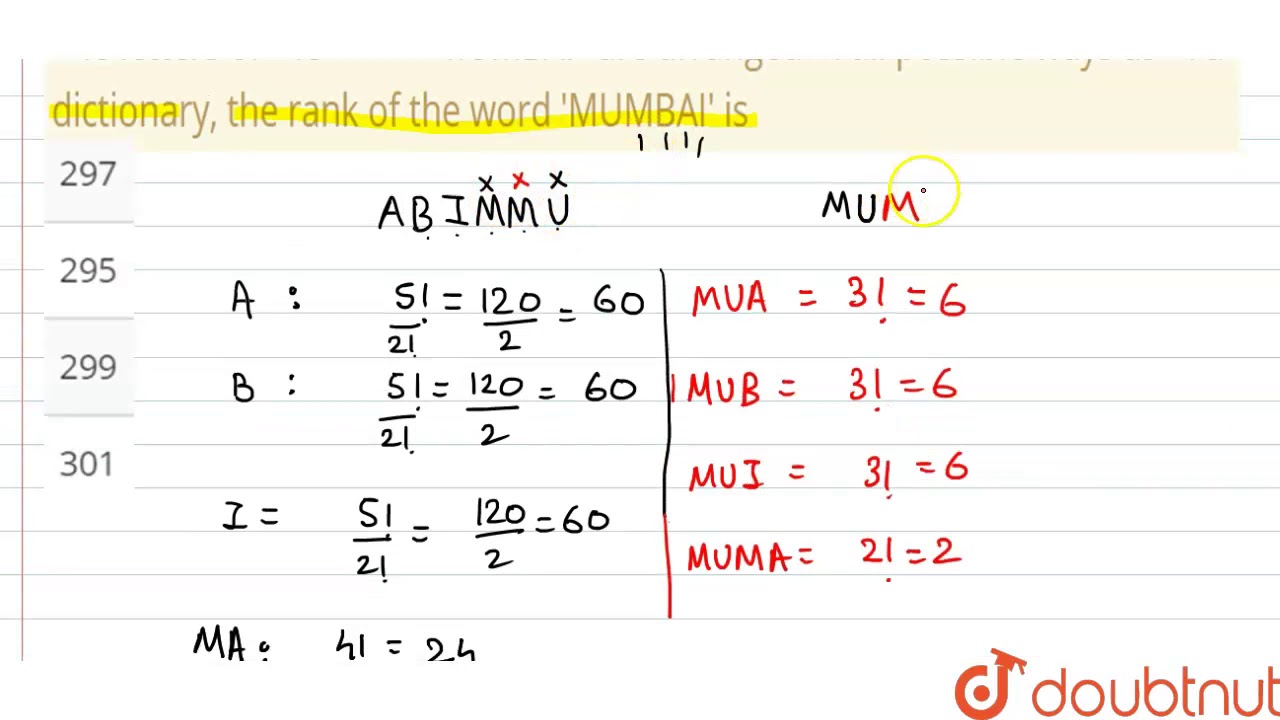 dictionary, the rank of the word 'MUMBAI' is
297
295
299
301
x x x
A B I M M U
A : 5!/2! = 120/2 = 60
B : 5!/2! = 120/2 = 60
I = 5!/2! = 120/2 = 60
MA: 4! = 24
MUM
MUA = 3! = 6
MUB = 3! = 6
MUI = 3! = 6
MUMA = 2! = 2
doubtnut